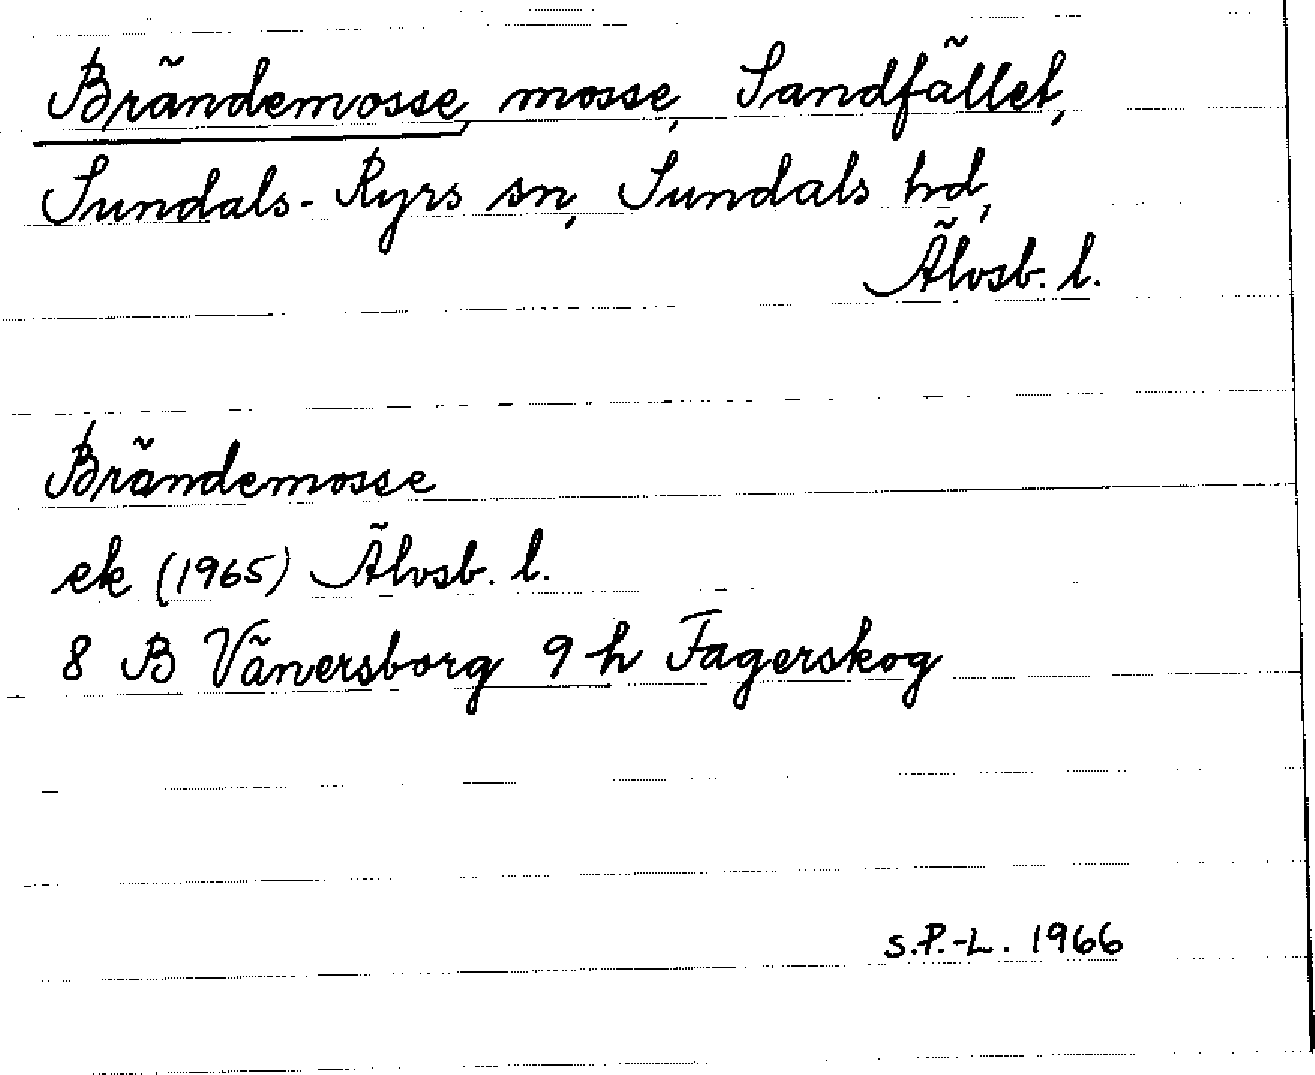 Brändemosse, mosse, Sandfället,
Sundals-Ryrs sn, Sundals hd,
Älvsb. l.
Brändemosse
ek (1965) Älvsb. l.
8 B Vänersborg 9 h Fagerskog
S.P.-L. 1966